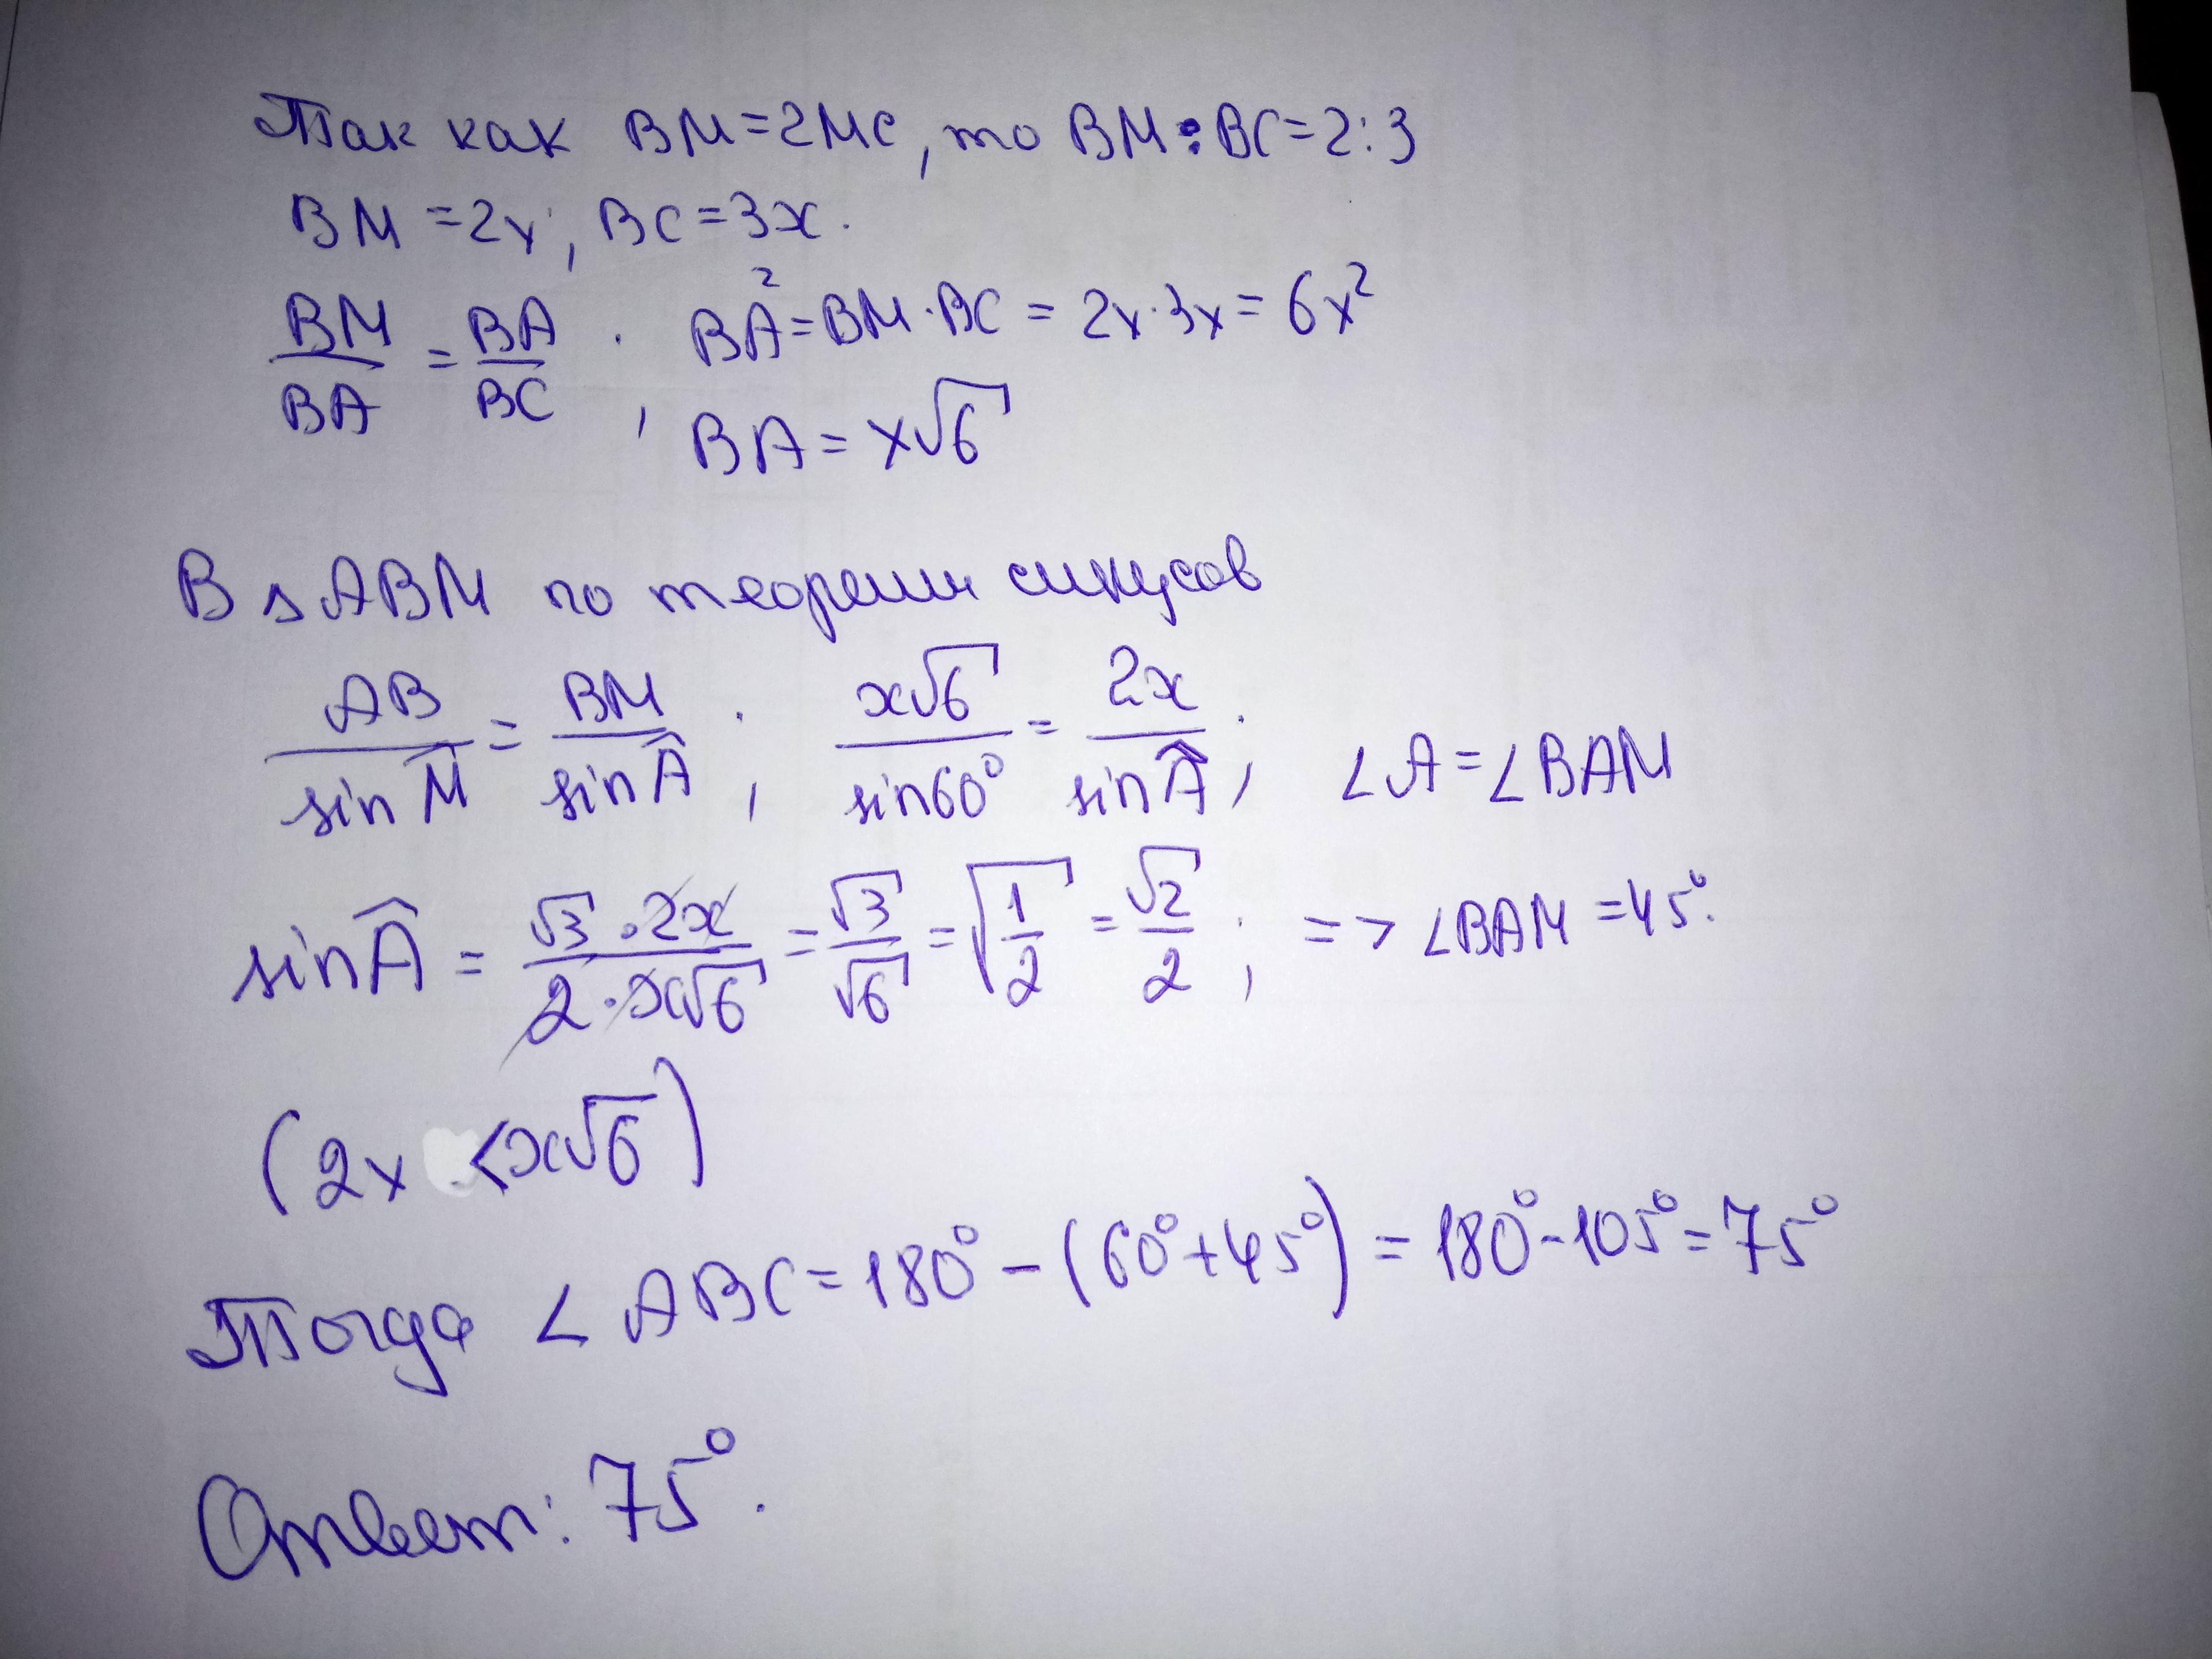 Так как BM=2MC, то BM:BC=2:3
BM=2x; BC=3x.
BM/BA = BA/BC ; BA²=BM·BC=2x·3x=6x²
BA=x√6
В △ABM по теореми синусов
AB/sin M̂ = BM/sin Â ; x√6/sin60° = 2x/sin Â ; ∠A=∠BAM
sin Â = √3·2x/2·x√6 = √3/√6 = √1/2 = √2/2 ; => ∠BAM=45°.
(2x <x√6)
Тогда ∠ABC=180°-(60°+45°)=180°-105°=75°
Ответ: 75°.